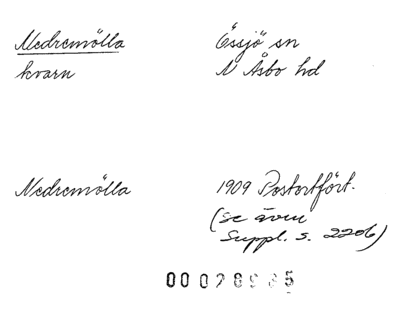 Nedremölla Össjö sn
kvarn N Åsbo hd
Nedremölla 1909 Postortfört.
(se även
Suppl. s. 2206)